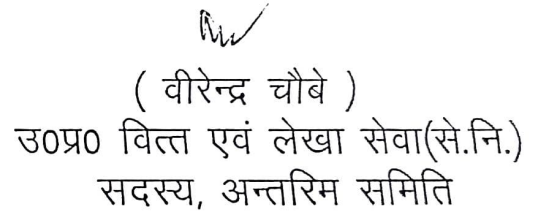 ( वीरेन्द्र चौबे )
उ0प्र0 वित्त एवं लेखा सेवा(से.नि.)
सदस्य, अन्तरिम समिति